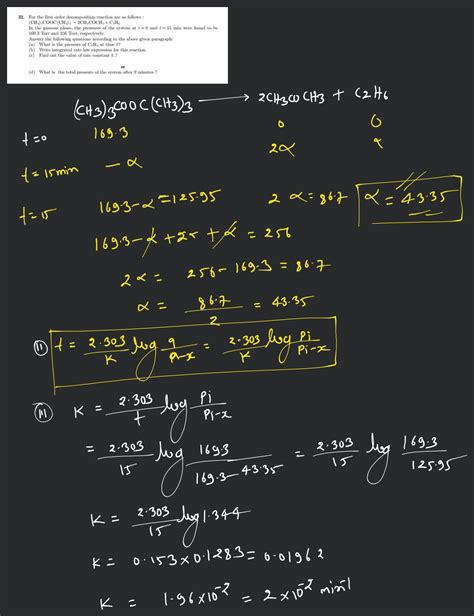 32. For the first order decomposition reaction are as follows :
(CH₃)₃COOC(CH₃)₃ → 2CH₃COCH₃ + C₂H₆
In the gaseous phase, the pressures of the system at t = 0 and t = 15 min were found to be
169.3 Torr and 256 Torr, respectively.
Answer the following questions according to the above given paragraph:
(a) What is the pressure of C₂H₆ at time t?
(b) Write integrated rate law expression for this reaction.
(c) Find out the value of rate constant k.?
or
(d) What is the total pressure of the system after 9 minutes ?
(CH3)3COOC(CH3)3 → 2CH3COCH3 + C2H6
t=0 169.3 0 0
t=15min -α 2α α
t=15 169.3-α=125.95 2α=86.7 α=43.35
169.3-α+2α+α = 256
2α = 256-169.3 = 86.7
α = 86.7/2 = 43.35
(ii) t = 2.303/K log a/a-x = 2.303/K log Pi/Pi-x
K = 2.303/t log Pi/Pi-x
= 2.303/15 log 169.3/169.3-43.35 = 2.303/15 log 169.3/125.95
K = 2.303/15 log 1.344
K = 0.153×0.1283=0.01962
K = 1.96×10⁻² = 2×10⁻² min⁻¹